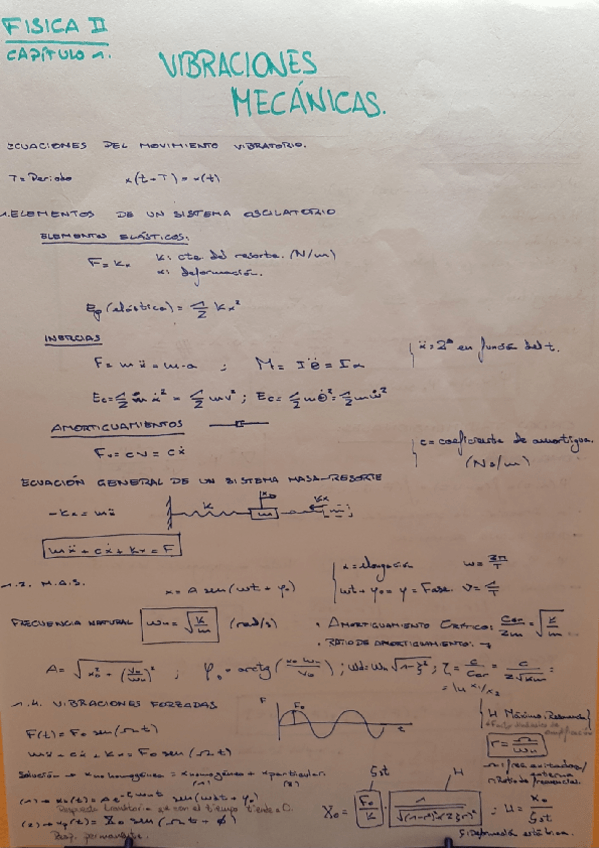 FISICA II
CAPÍTULO 1.
VIBRACIONES
MECÁNICAS.
ECUACIONES DEL MOVIMIENTO VIBRATORIO.
T = Periodo x(t+T) = x(t)
1. ELEMENTOS DE UN SISTEMA OSCILATORIO
ELEMENTOS ELÁSTICOS.
F = Kx K: cte. del resorte. (N/m)
x: deformación.
Ep (elástica) = 1/2 Kx²
INERCIAS
F = mẍ = m·a ; M = Iθ̈ = Iα
ẍ = 2ª en función del t.
Ec = 1/2 mẋ² = 1/2 mv² ; Ec = 1/2 mθ̇² = 1/2 mω²
AMORTIGUAMIENTOS
Fv = cv = cẋ
c = coeficiente de amortigua.
(Ns/m)
ECUACIÓN GENERAL DE UN SISTEMA MASA-RESORTE
-Kx = mẍ
K
m
Kx
mẍ + cẋ + Kx = F
1.2. M.A.S.
x = A sen(ωt + φ₀)
x = elongación ω = 2π/T
ωt + φ₀ = φ = Fase. ν = 1/T
FRECUENCIA NATURAL ωn = √(K/m) (rad/s)
· AMORTIGUAMIENTO CRÍTICO: Ccr/2m = √(K/m)
· RATIO DE AMORTIGUAMIENTO: →
A = √(x₀² + (v₀/ωn)²) ; φ₀ = arctg(x₀ωn/v₀) ; ωd = ωn√(1-ξ²) ; ξ = c/Ccr = c/2√(Km) =
= ln x₁/x₂
1.4. VIBRACIONES FORZADAS
F
F₀
t
H Máximo: Resonancia
F(t) = F₀ sen(Ωt)
r = Ω/ωn
mẍ + cẋ + Kx = F₀ sen(Ωt)
Solución → x = homogénea = x homogénea + x particular
(1) (2)
(1) → xh(t) = A e sen(ωdt + φ₀)
Respuesta transitoria
(2) → xp(t) = X₀ sen(Ωt + φ)
Resp. permanente.
X₀ = F₀/K · 1/√((1-r²)²+(2ξr)²) ; H = X₀/δst
δst
H
δ: Deformación estática.